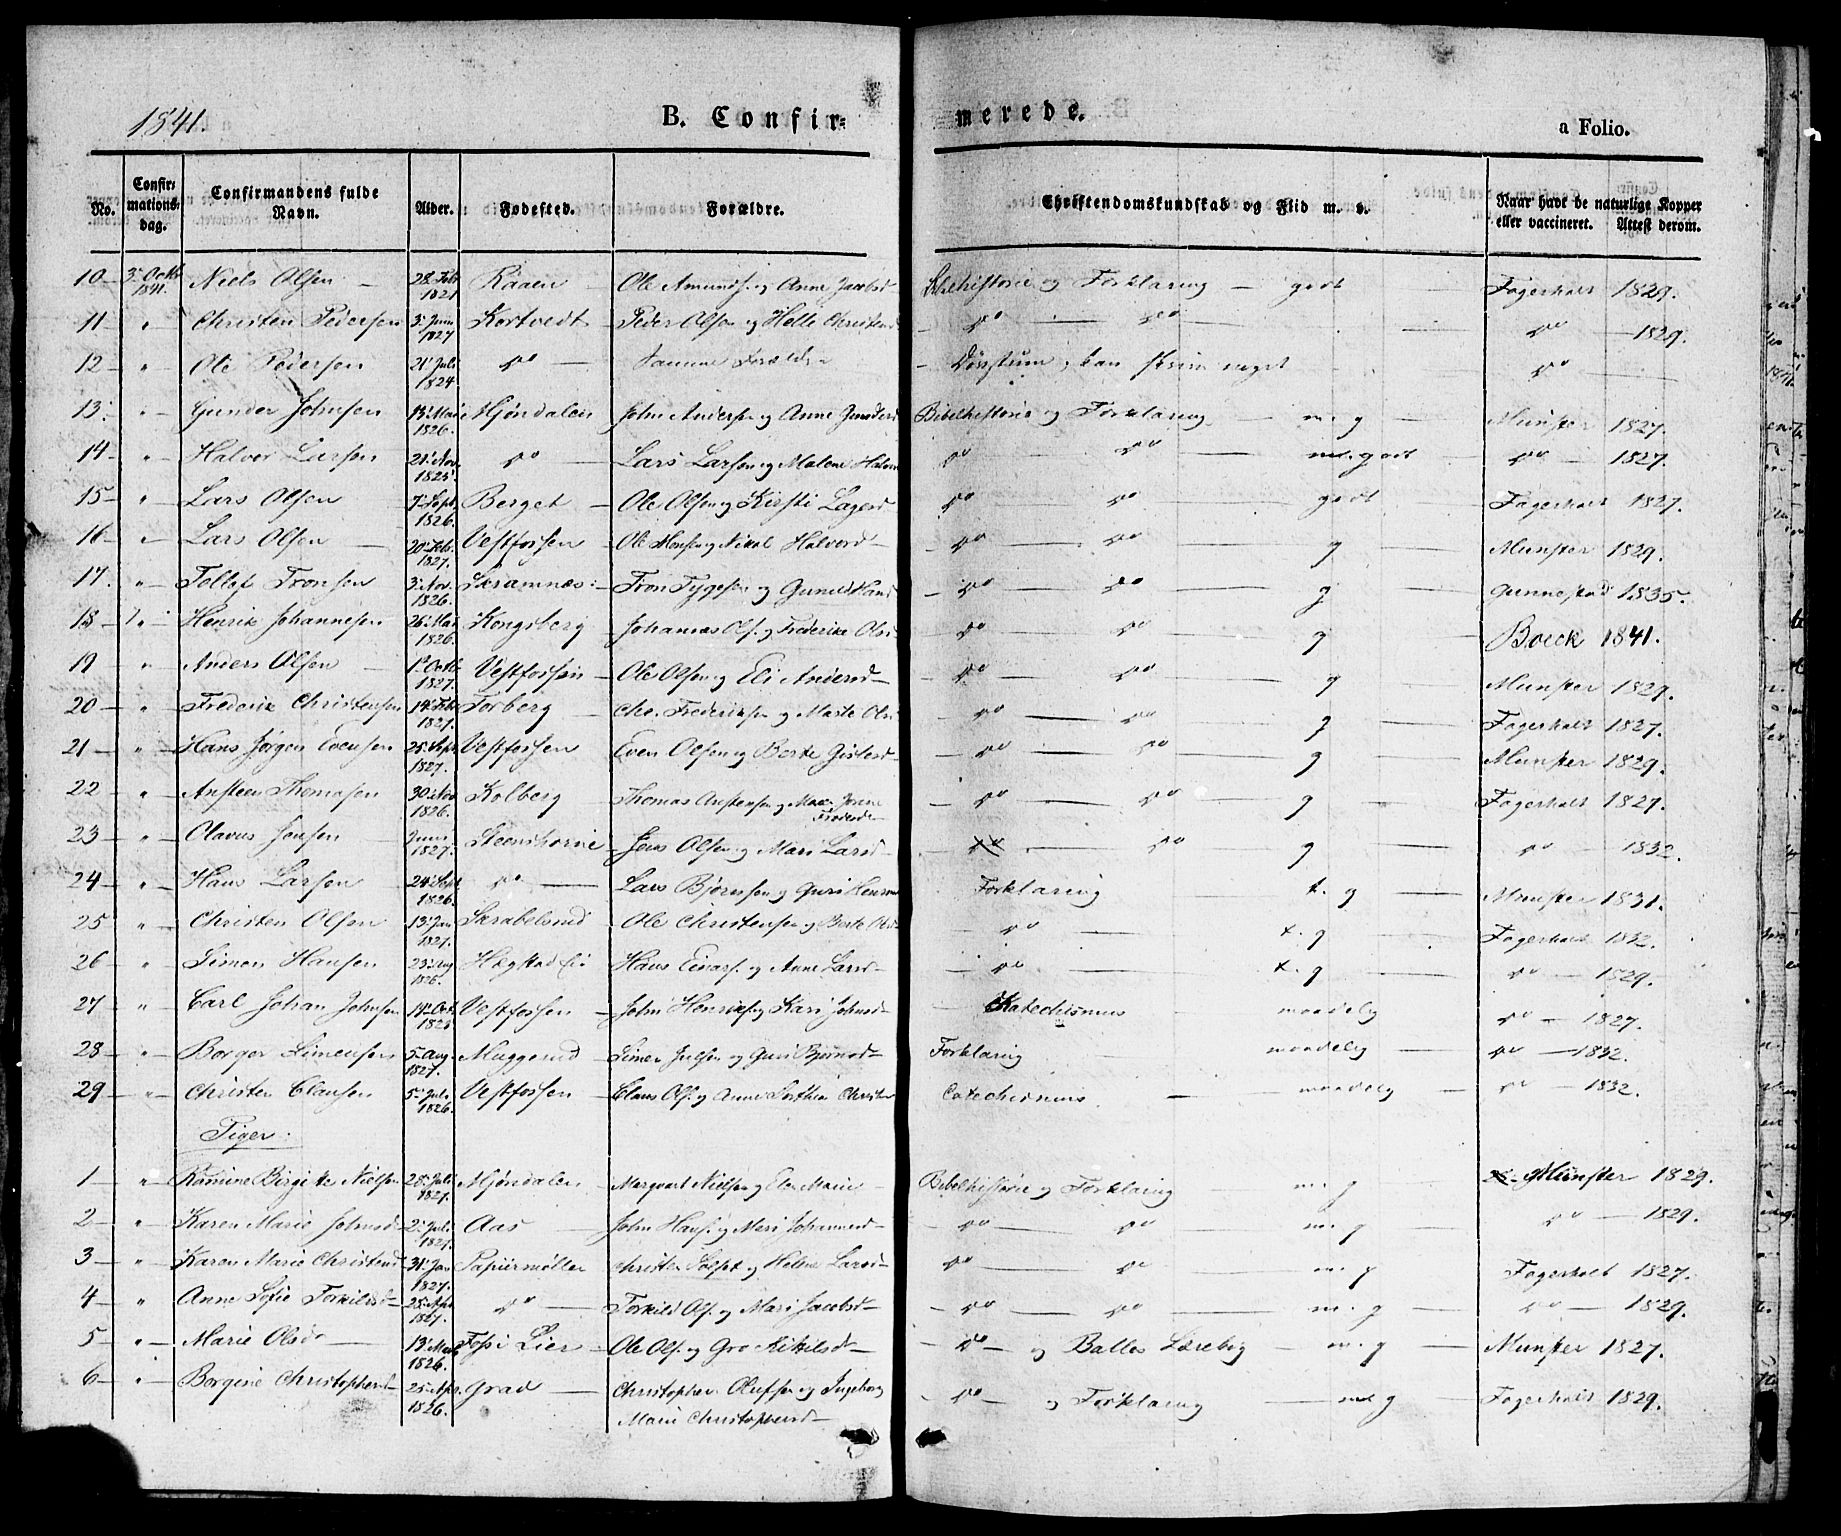 1841.
B. Confir= merede. a Folio.
No. Confirmationsdag. Confirmandens fulde Navn. Alder. Fødested. Forældre. Christendomskundskab og Flid m. v. Naar havt de naturlige Kopper eller vaccineret. Attest derom.
10 3. Octb. 1841. Niels Olsen 28. Febr 1821 Raaen Ole Amunds. og Anne Jacobsd Bibelhistorie og Forklaring godt Fagerholt 1829.
11 " Christen Pedersen 3. Juni 1827 Kortvedt Peder Olsen og Helle Christensd do do do 1829.
12 " Ole Pedersen 21. Juli 1824 do Samme Forældre Døvstum, kan skrive noget do
13. " Gunder Johnsen 13. Mai 1826. Mjøndalen John Andersen og Anne Gundersd Bibelhistorie og Forklaring m. g Munster 1827.
14 " Halvor Larsen 21. Nov. 1825. do Lars Larsen og Malene Halvors do do m. godt do 1827.
15 " Lars Olsen 7. Sept. 1826. Berget Ole Olsen og Kirsti Lagesd do do godt Fagerholt 1827.
16 " Lars Olsen 20. Feb. 1827. Vestfossen Ole Monsen og Nikol Halvord do do g Munster 1829.
17. " Tollef Tronsen 3. Nov. 1826. Skramnæs Tron Tygesen og Gunild Hansd do do g Gunnestad 1835.
18 " Henrik Johannesen 26. Mai 1826. Kongsberg Johannes Ols. og Frederike Olsd do do g Boeck 1841.
19 " Anders Olsen 1. Octb. 1827. Vestfossen Ole Olsen og Eli Andersd do do g Munster 1829.
20 " Frederik Christensen 14. Febr 1827. Torberg Chr. Frederiksen og Marte Olsd do do g Fagerholt 1827.
21 " Hans Jørgen Evensen 25. Apr. 1827. Vestfossen Even Olsen og Berte Gislesd do do g Munster 1829.
22 " Ansteen Thomasen 30. Nov 1826. Kolberg Thomas Anstensen og do do g Fagerholt 1827.
23 " Olavus Jensen Juni 1827. Steenshorne Jens Olsen og Mari Larsd do do g do 1832.
24 " Hans Larsen 24. Sept 1826. do Lars Bjørnsen og Guri Forklaring t. g Munster 1831.
25 " Christen Olsen 13. Jan 1827. Skrabelsrud Ole Christensen og Berte Olsd do t. g Fagerholt 1832.
26 " Simon Hansen 23. Aug 1826. Hans Einars. og Anne Larsd do t. g do 1829.
27 " Carl Johan Johnsen 14. Oct. 1825 Vestfossen John Henriks. og Kari Johnsd Katechismus maadelig do 1827.
28 " Borger Simensen 5. Aug. 1827. Muggerud Simen Julsen og Guri Bjørnsd Forklaring maadelig do 1832.
29 " Christen Clausen 5. Juli 1826. Vestfossen Claus Ols. og Anne Catechismus maadelig do 1832.
Piger:
1 " Birgitte Nielsen 28. Juli 1827. Mjøndalen Marqvart Nielsen og Bibelhistorie og Forklaring m. g Münster 1829.
2 " Karen Marie Johnsd 2. Juli 1827. Aas John Hans. og Mari Johannesd do do m. g do 1829.
3 " Karen Marie Christensd 31. Jan 1827. Papiermøllen Christen og Helene Larsd do do m. g Fagerholt 1827.
4 " Anne Sofie Torkildsd 25. Apr 1827. do Torkild Ols. og Mari Jacobsd do do m. g do 1829.
5 " Marie Olsd 13. 1826. Foss i Lier Ole Ols. og Gro Kittilsd do og Balles Lærebog m. g Munster 1827.
6 " Borgine Christophersd 25. Apr. 1826. Grad Christopher Olufsen og Ingeborg do og Forklaring m. g Fagerholt 1829.
Marie Christophersd